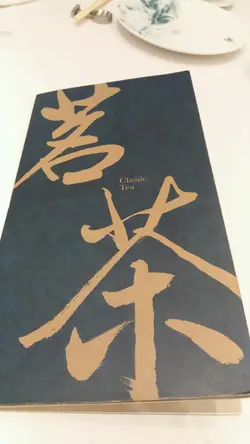 茗
Classic
Tea
茶